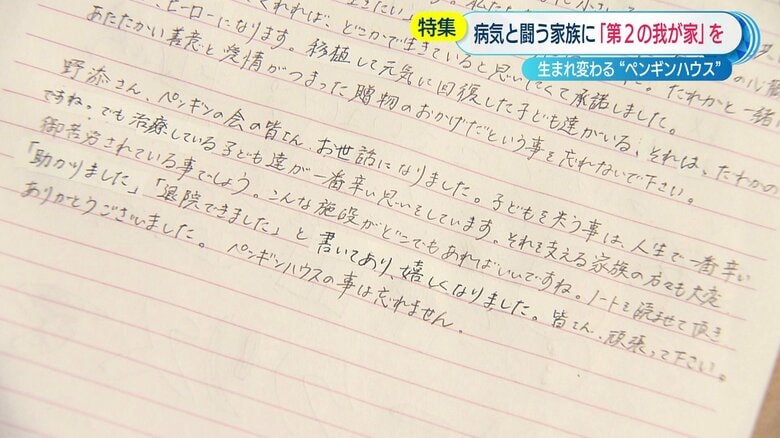 特集 病気と闘う家族に「第2の我が家」を
生まれ変わる“ペンギンハウス”
ヒーローになります。くれれば、どこかで生きていると思いたくて承諾しました。だれかと一緒に
あたたかい善意と愛情がつまった贈物のおかげだという事を忘れないで下さい。
移植して元気に回復した子ども達がいる、それは、たれかの
野添さん、ペンギンの会の皆さん、お世話になりました。子どもを失う事は、人生で一番辛い
ですね。でも治療している子ども達が一番辛い思いをしています。それを支える家族の方々も大変
御苦労されている事でしょう。こんな施設がどこでもあればいいですね。ノートを読ませて頂き
「助かりました」「退院できました」と書いてあり、嬉しくなりました。皆さん、頑張って下さい。
ありがとうございました。ペンギンハウスの事は忘れません。